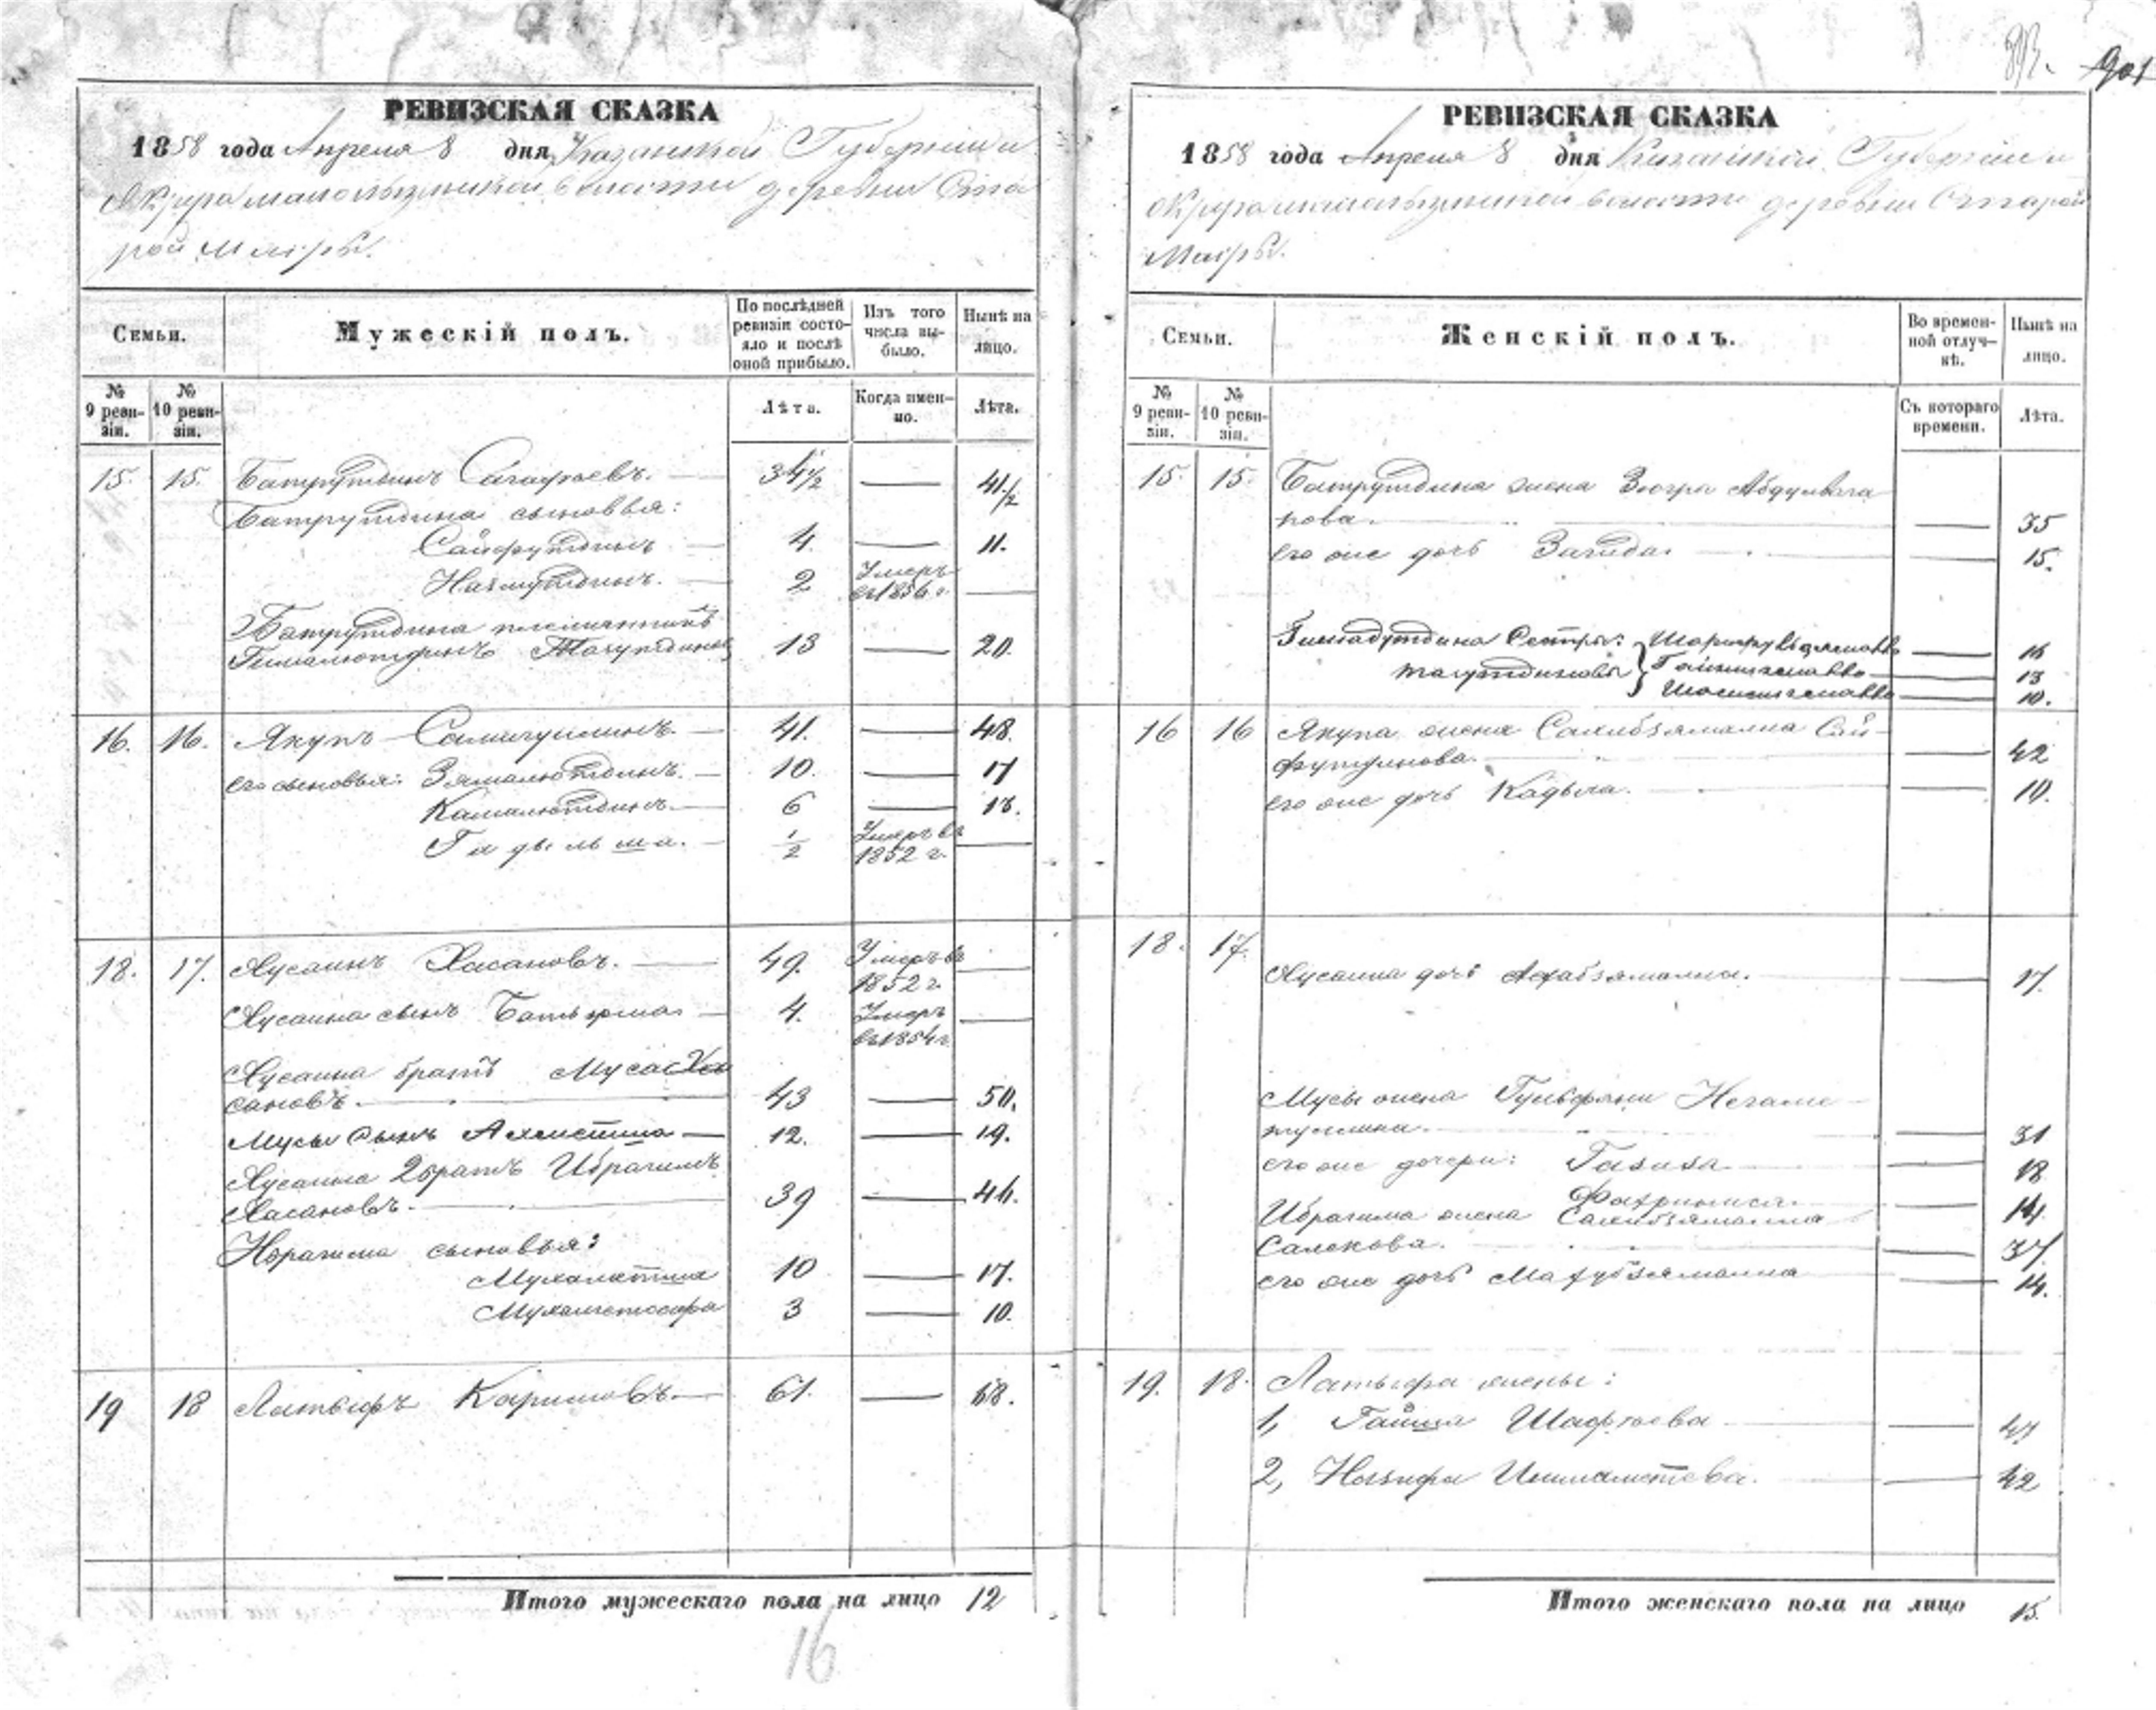 901
РЕВИЗСКАЯ СКАЗКА
1858 года Апреля 8 дня Казанской Губернии и
волости деревни Ста
рой
Семьи.
Мужескій полъ.
По послѣдней ревизіи состояло и послѣ оной прибыло.
Изъ того числа выбыло.
Нынѣ на лицо.
№ 9 ревизіи.
№ 10 ревизіи.
Лѣта.
Когда именно.
Лѣта.
15. 15. Батрутдинъ — 34½ — 41½
Батрутдина сыновья:
Сайфутдинъ — 4. — 11.
Назмутдинъ. — 2 Умеръ въ 1856 г. —
Батрутдина племянникъ
Гималютдинъ Тазутдиновъ 13 — 20.
16. 16. Якупъ Самигулинъ. — 41. — 48.
его сыновья: Зямалютдинъ. — 10. — 17
Камалютдинъ. — 6 — 13.
Гадыльша. — ½ Умеръ въ 1852 г. —
18. 17. Хусаинъ Хасановъ. — 49. Умеръ въ 1852 г. —
Хусаина сынъ Батырша — 4. Умеръ въ 1854 г. —
Хусаина братъ Муса Ха
сановъ. — 43 — 50.
Мусы сынъ Ахметша — 12. — 19.
Хусаина 2 братъ Ибрагимъ
Хасановъ. — 39 — 46.
Ибрагима сыновья:
Мухаматша 10 — 17.
Мухаметсафа 3 — 10.
19 18 Латыфъ Каримовъ. — 61. — 68.
Итого мужескаго пола на лицо 12
16
РЕВИЗСКАЯ СКАЗКА
1858 года Апреля 8 дня Казанской Губернии и
волости деревни Старой
Семьи.
Женскій полъ.
Во временной отлучкѣ.
Нынѣ на лицо.
№ 9 ревизіи.
№ 10 ревизіи.
Съ котораго времени.
Лѣта.
15. 15. Батрутдина жена Зюгра Абдулвага
пова. — — 35
его же дочь Загида — — 15.
Сестры: — 16
Тазутдиновы — 13
— 10.
16 16 Якупа жена Сахибзямалиа Сай-
футдинова. — — 42
его же дочь Кадыла. — — 10.
18. 17. Хусаина дочь — 17.
Мусы жена Негаме-
туллина. — — 31
его же дочери: Газиза — — 18
— 14.
Ибрагима жена Сахибзямалиа
Салекова. — — 37
его же дочь Махубзямалиа — 14.
19. 18. Латыфа жены:
1, Гайша — — 47
2, Назифа Ишмаметева. — 42
Итого женскаго пола на лицо 15.